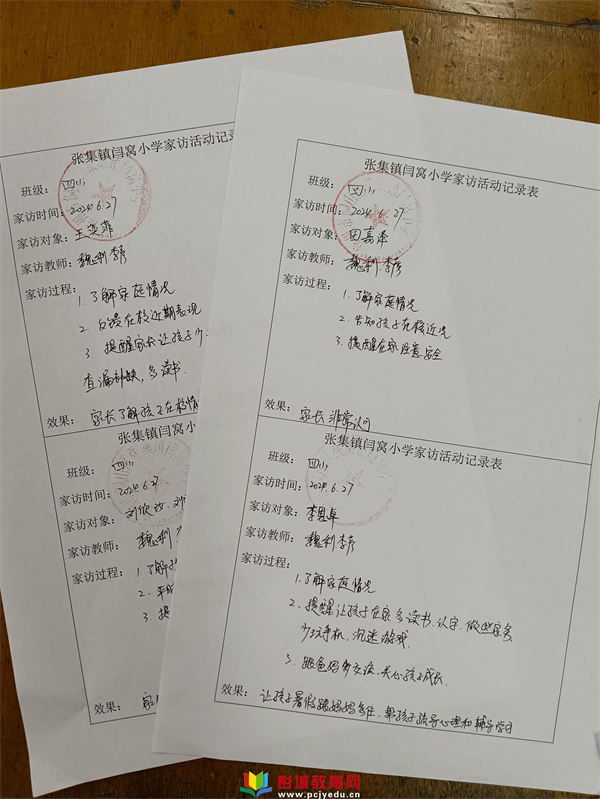 张集镇闫窝小学家访活动记录
班级：四(1)
家访时间：2024.6.27
家访对象：王奕菲
家访教师：魏利 李彦
家访过程：
1. 了解家庭情况
2. 反馈在校近期表现
3. 提醒家长让孩子
查漏补缺，多读书.
效果：家长了解孩子在校情
张集镇闫窝小
班级：四(1)
家访时间：2024.6.27
家访对象：刘欣
家访教师：魏利
家访过程：1. 了解
2. 平
3. 提
效果：
张集镇闫窝小学家访活动记录表
班级：四(1)
家访时间：2024.6.27
家访对象：田嘉泽
家访教师：魏利 李彦
家访过程：
1. 了解家庭情况
2. 告知孩子在校近况
3. 提醒在家注意安全
效果：家长非常认可
张集镇闫窝小学家访活动记录表
班级：四(1)
家访时间：2024.6.27
家访对象：李恩卓
家访教师：魏利 李彦
家访过程：
1. 了解家庭情况
2. 提醒让孩子在家多读书、认字、做些家务
少玩手机、沉迷游戏.
3. 跟爸妈多交流，关心孩子成长.
效果：让孩子暑假跟妈妈多住，帮孩子疏导心理和辅导学习
彭城教育网
www.pcjyedu.cn